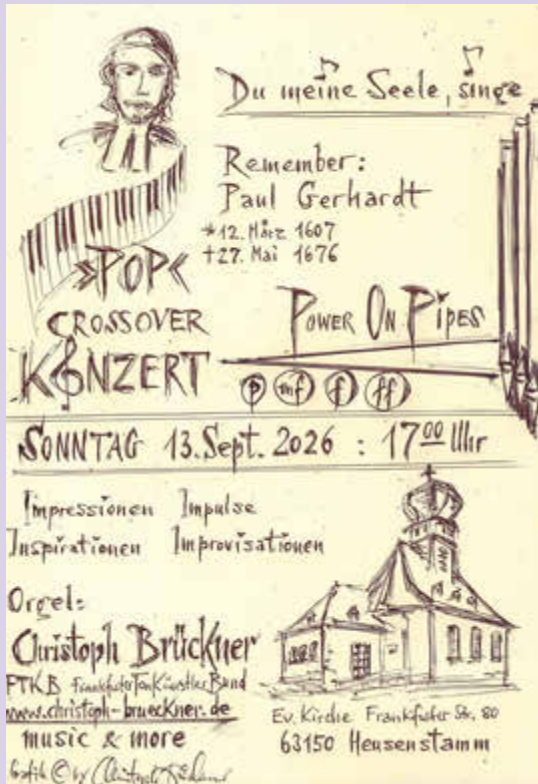 Du meine Seele, singe
Remember:
Paul Gerhardt
*12. März 1607
†27. Mai 1676
»POP«
CROSSOVER
KONZERT
POWER ON PIPES
p mf f ff
SONNTAG 13. Sept. 2026 : 17⁰⁰ Uhr
Impressionen Impulse
Inspirationen Improvisationen
Orgel:
Christoph Brückner
FTKB FrankfurterTonKünstlerBund
www.christoph-brueckner.de
music & more
Grafik © by
Ev. Kirche Frankfurter Str. 80
63150 Heusenstamm